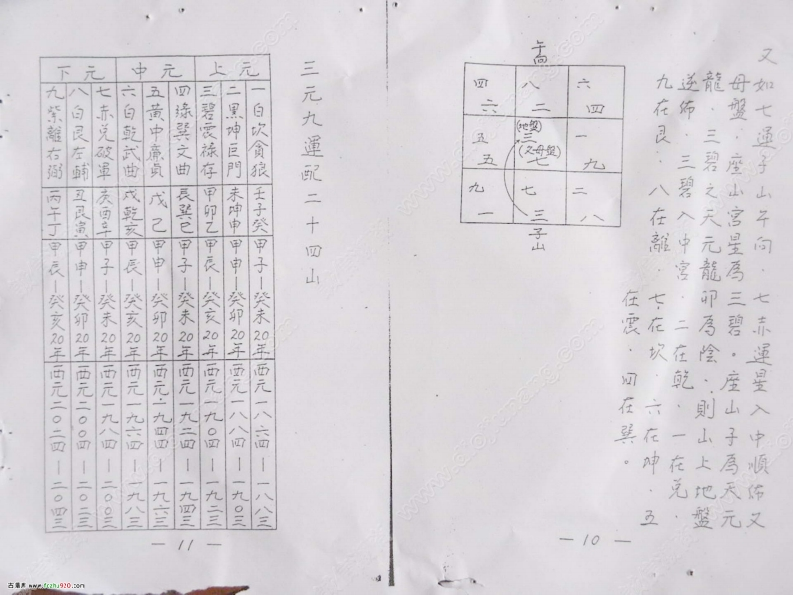 又如七運子山午向．七赤運星入中順佈又
母盤．座山宮星為三碧。座山子為天元
龍．三碧之天元龍卯為陰．則山上地盤
逆佈．三碧入中宮．二在乾．一在兌．
九在艮．八在離．七在坎．六在坤．五
在震．四在巽。
午向
四 八 六
六 二 四
(地盤)
五 三 一
(父母盤)
五 七 九
九 七 二
一 三 八
子山
— 10 —
三元九運配二十四山
上元
中元
下元
一白坎貪狼 壬子癸 甲子—癸未20年 西元一八六四—一八八三
二黑坤巨門 未坤申 甲申—癸卯20年 西元一八八四—一九０三
三碧震祿存 甲卯乙 甲辰—癸亥20年 西元一九０四—一九二三
四綠巽文曲 辰巽巳 甲子—癸未20年 西元一九二四—一九四三
五黃中廉貞 戊己 甲申—癸卯20年 西元．一九四四—一九六三
六白乾武曲 戌乾亥 甲辰—癸亥20年 西元一九六四—一九八三
七赤兌破軍 庚酉辛 甲子—癸未20年 西元一九八四—二００三
八白艮左輔 丑艮寅 甲申—癸卯20年 西元二００四—二０二三
九紫離右弼 丙午丁 甲辰—癸亥20年 西元二０二四—二０四三
— 11 —